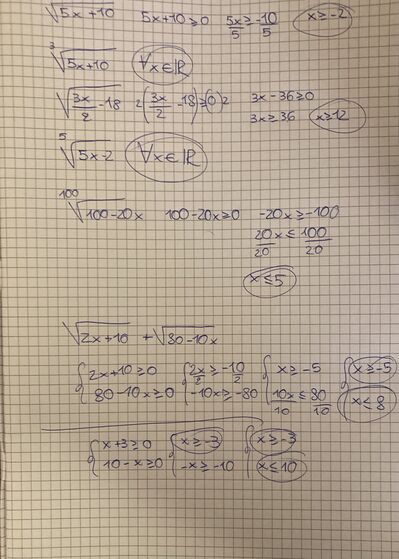 √5x+10 5x+10≥0 5x/5 ≥ -10/5 x≥-2
³√5x+10 ∀x∈ℝ
√3x/2-18 2(3x/2-18)≥(0)2 3x-36≥0
3x≥36 x≥12
⁵√5x-2 ∀x∈ℝ
¹⁰⁰√100-20x 100-20x≥0 -20x≥-100
20x/20 ≤ 100/20
x≤5
√2x+10 + √80-10x
{2x+10≥0 {2x/2 ≥ -10/2 {x≥-5 {x≥-5
80-10x≥0 -10x≥-80 10x/10 ≤ 80/10 x≤8
{x+3≥0 {x≥-3 {x≥-3
10-x≥0 -x≥-10 x≤10